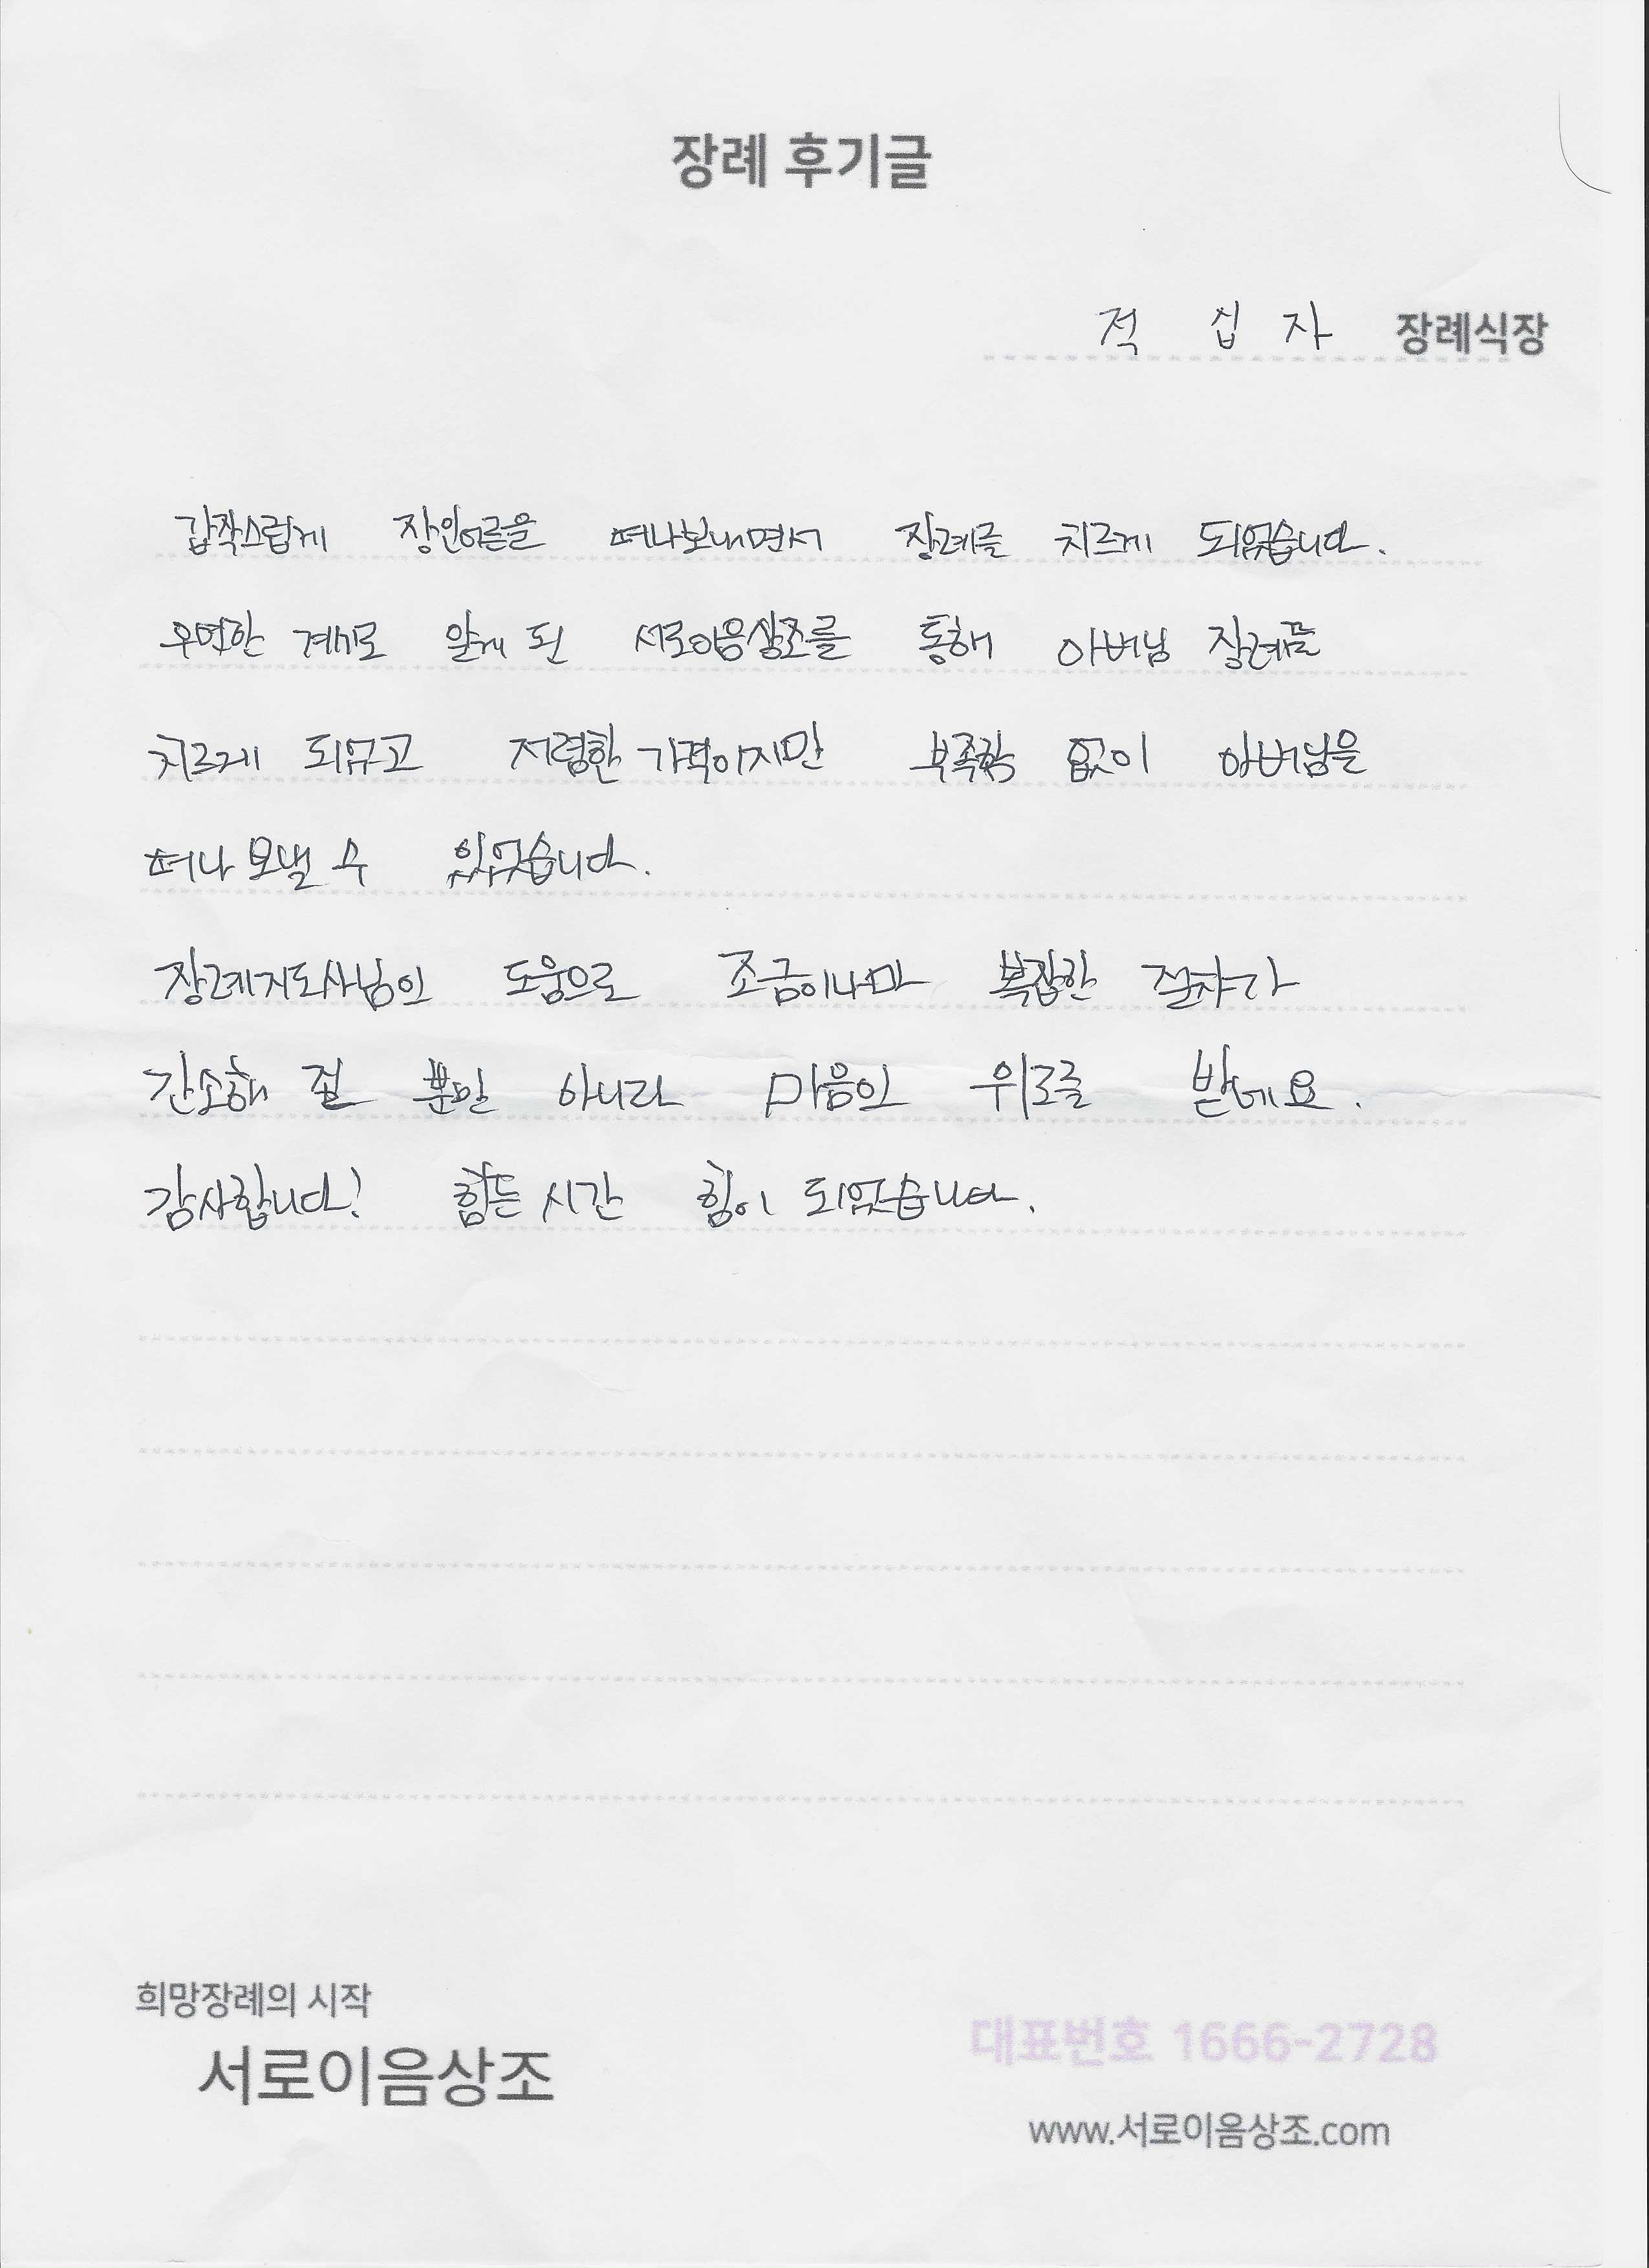 장례 후기글
적 십 자 장례식장
갑작스럽게 장인어른을 떠나보내면서 장례를 치르게 되었습니다.
우연한 계기로 알게 된 서로이음상조를 통해 아버님 장례를
치르게 되었고 저렴한 가격이지만 부족함 없이 아버님을
떠나 보낼 수 있었습니다.
장례지도사님의 도움으로 조금이나마 복잡한 절차가
간소해 질 뿐만 아니라 마음의 위로를 받네요.
감사합니다! 힘든 시간 힘이 되었습니다.
희망장례의 시작
서로이음상조
대표번호 1666-2728
www.서로이음상조.com